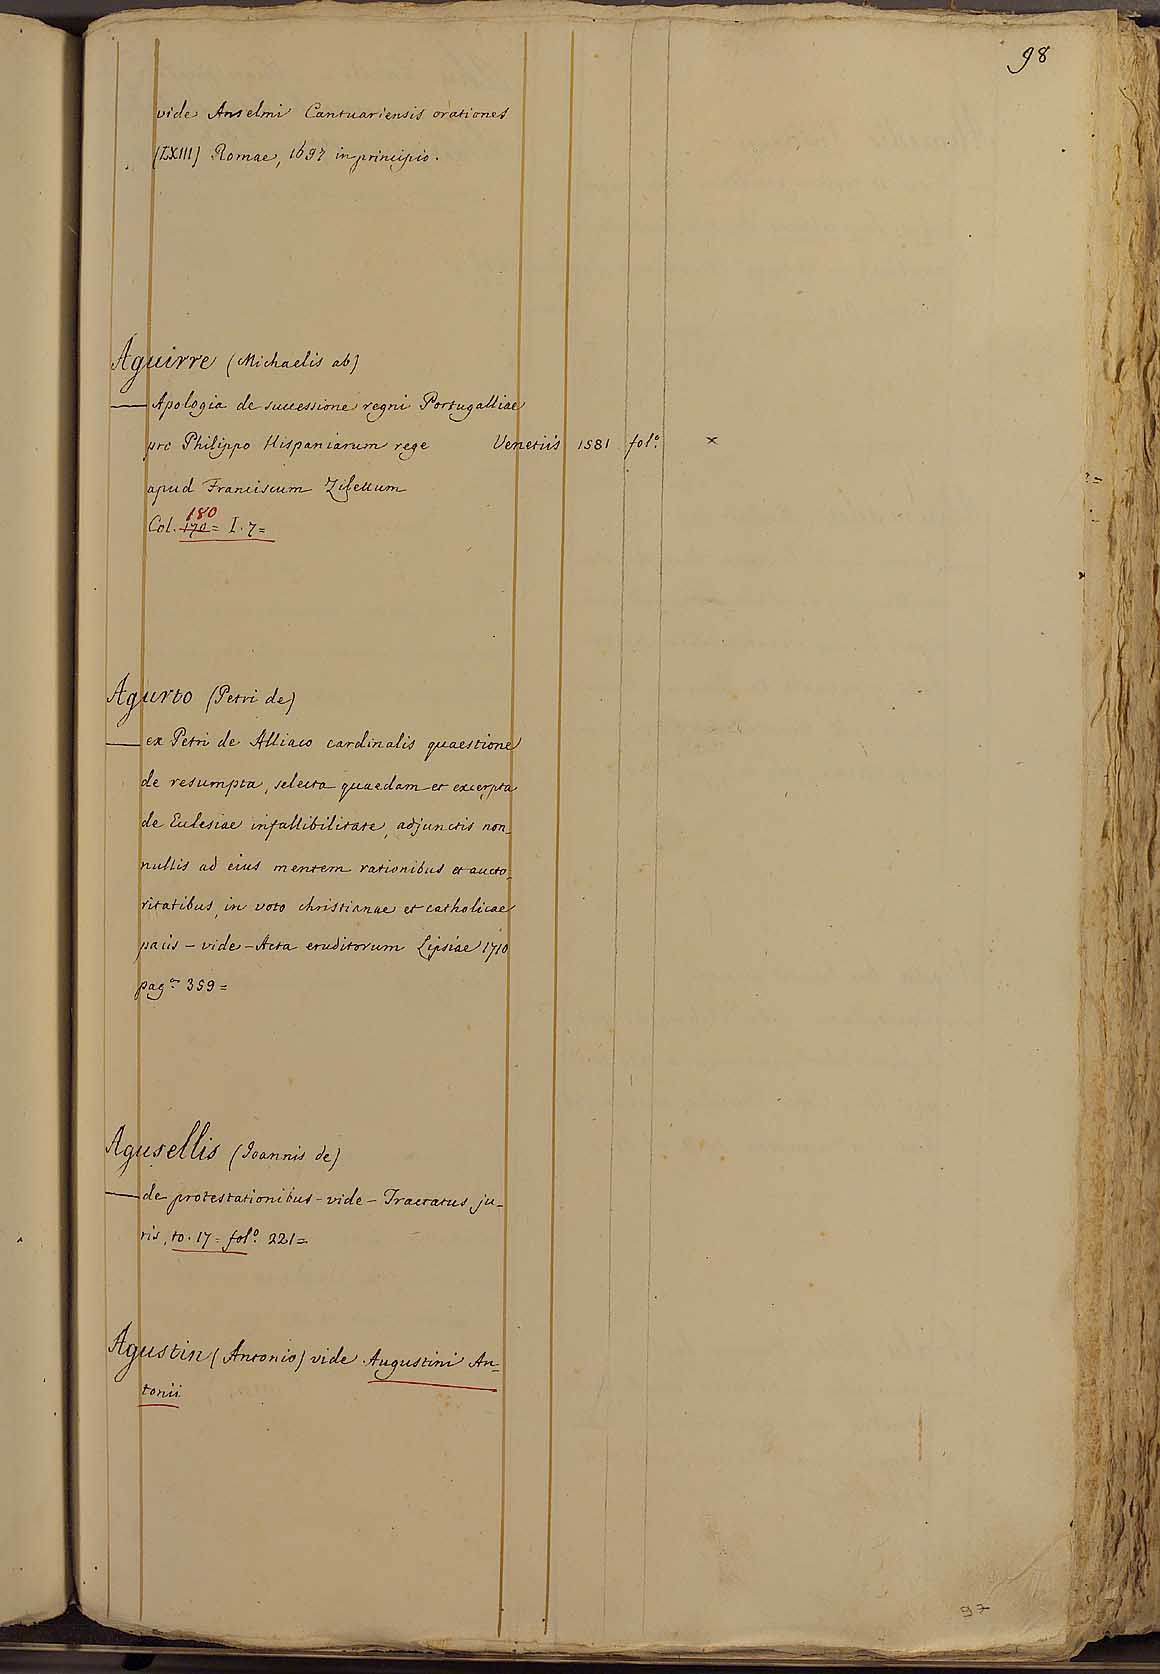 98
vide Anselmi Cantuariensis orationes
(LXIII) Romae, 1697 in principio.
Aguirre (Michaelis ab)
— Apologia de successione regni Portugalliae
pro Philippo Hispaniarum rege Venetiis 1581 fol.º ×
apud Franciscum Zilettum
180
Col. 170 = I. 7 =
Agurto (Petri de)
— ex Petri de Alliaco cardinalis quaestione
de resumpta, selecta quaedam et excerpta
de Ecclesiae infallibilitate, adjunctis non-
nullis ad eius mentem rationibus et aucto-
ritatibus, in voto christianae et catholicae
pacis – vide – Acta eruditorum Lipsiae 1710
pag.ª 359 =
Agusellis (Joannis de)
— de protestationibus – vide – Tractatus ju-
ris, to. 17 = fol.º 221 =
Agustin (Antonio) vide Augustini An-
tonii
97